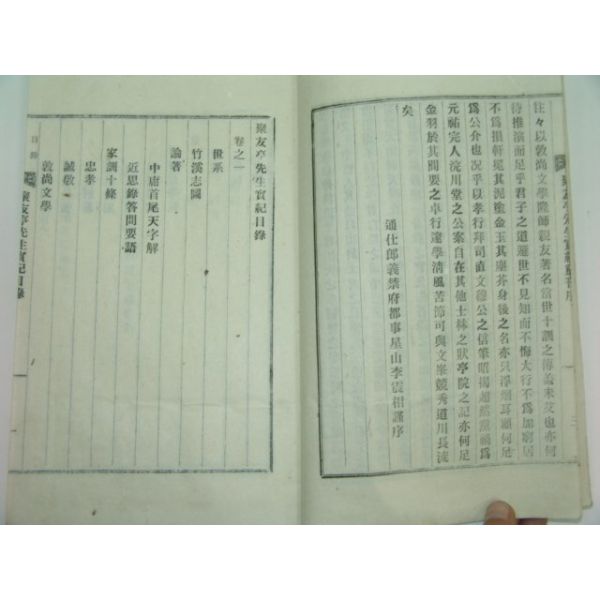 往々以敦尚文學隆師親友著名當世十訓之傳義未艾也亦何
待推演而足乎君子之道遯世不見知而不悔大行不爲加窮居
不爲損軒冕其泥塗金玉其塵芥身後之名亦只浮烟耳顧何足
爲公介也况乎以孝行拜司直文穆公之信筆昭揭
元祐完人浣川堂之公案自在其他士林之狀亭院之記亦何足
金羽於其間要之卓行邃學清風苦節可與文峯競秀道川長流
矣
通仕郎義禁府都事星山李震相謹序
聚友亭先生實紀目錄
卷之一
世系
竹溪志圖
論著
中庸首尾天字解
近思錄答問要語
家訓十條
忠孝
誠敬
敦尚文學
目錄
聚友亭先生實記目錄
一